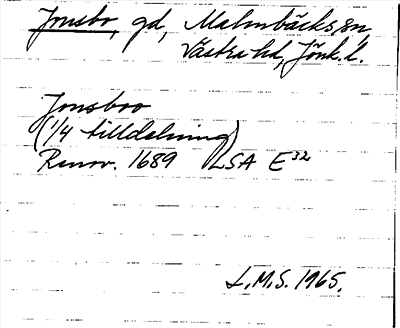 Jonsbo, gd, Malmbäcks sn,
Västra hd, Jönk. l.
Jonsboo
(1/4 tilldelning)
Renov. 1689 LSA E32
L.M.S. 1965.